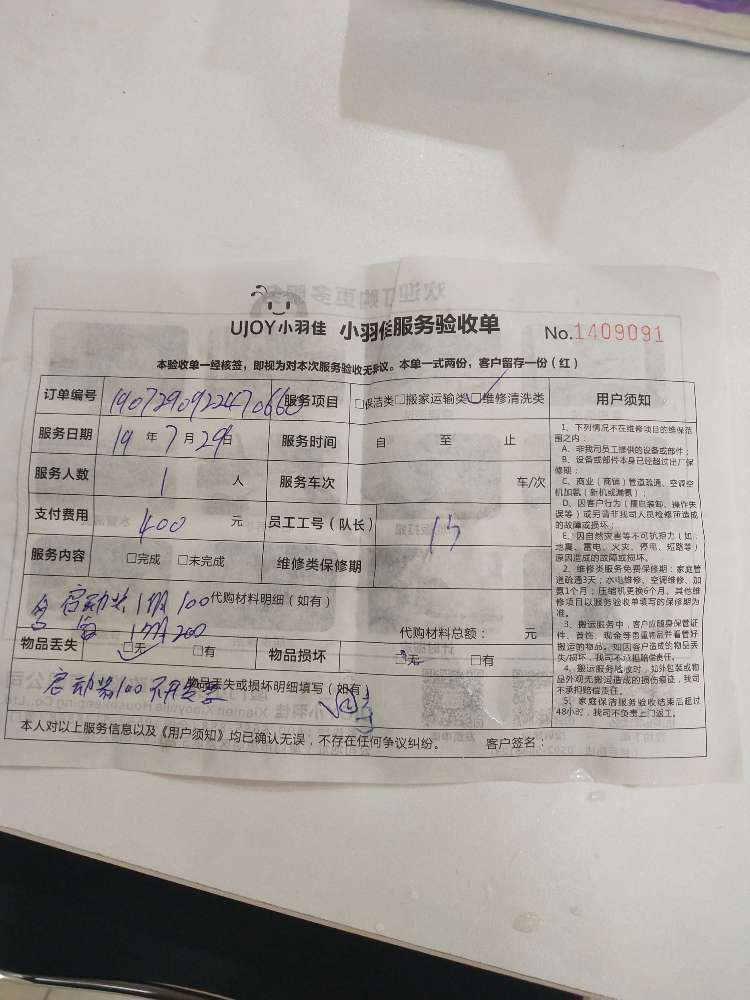 UJOY小羽佳 小羽佳服务验收单 No.1409091
本验收单一经核签，即视为对本次服务验收无异议。本单一式两份，客户留存一份（红）
订单编号 190729092247066 服务项目 □保洁类□搬家运输类□维修清洗类 用户须知
服务日期 19 年 7 月 29 日 服务时间 自 至 止
服务人数 1 人 服务车次 车/次
支付费用 400 元 员工工号（队长）
服务内容 □完成 □未完成 维修类保修期
启动 100 代购材料明细（如有）
200 代购材料总额： 元
物品丢失 □无 □有 物品损坏 □无 □有
启动 100 物品丢失或损坏明细填写（如有）
本人对以上服务信息以及《用户须知》均已确认无误，不存在任何争议纠纷。 客户签名：
1、下列情况不在维修项目的维保范
围之内：
A、非我司员工提供的设备或部件；
B、设备或部件本身已经超过出厂保
修期；
C、商业（商铺）管道疏通、空调空
机加氨（新机或漏氨）；
D、因客户行为（擅自装卸、操作失
误等）或另请非我司人员检修而造成
的故障或损坏；
E、因自然灾害等不可抗拒力（如：
地震、雷电、火灾、停电、短路等）
原因造成的故障或损坏。
2、维修类服务免费保修期：家庭管
道疏通3天；水电维修、空调维修、加
氨1个月；压缩机更换6个月，其他维
修项目以服务验收单填写的保修期为
准。
3、搬运服务中，客户应随身保管证
件、首饰、现金等贵重物品并看管好
搬运的物品。如因客户造成的物品丢
失/损坏，我司不承担赔偿责任。
4、搬运服务验收时，如外包装或物
品外观无搬运造成的损伤痕迹，我司
不承担赔偿责任。
5、家庭保洁服务验收结束后超过
48小时，我司不负责上门返工。